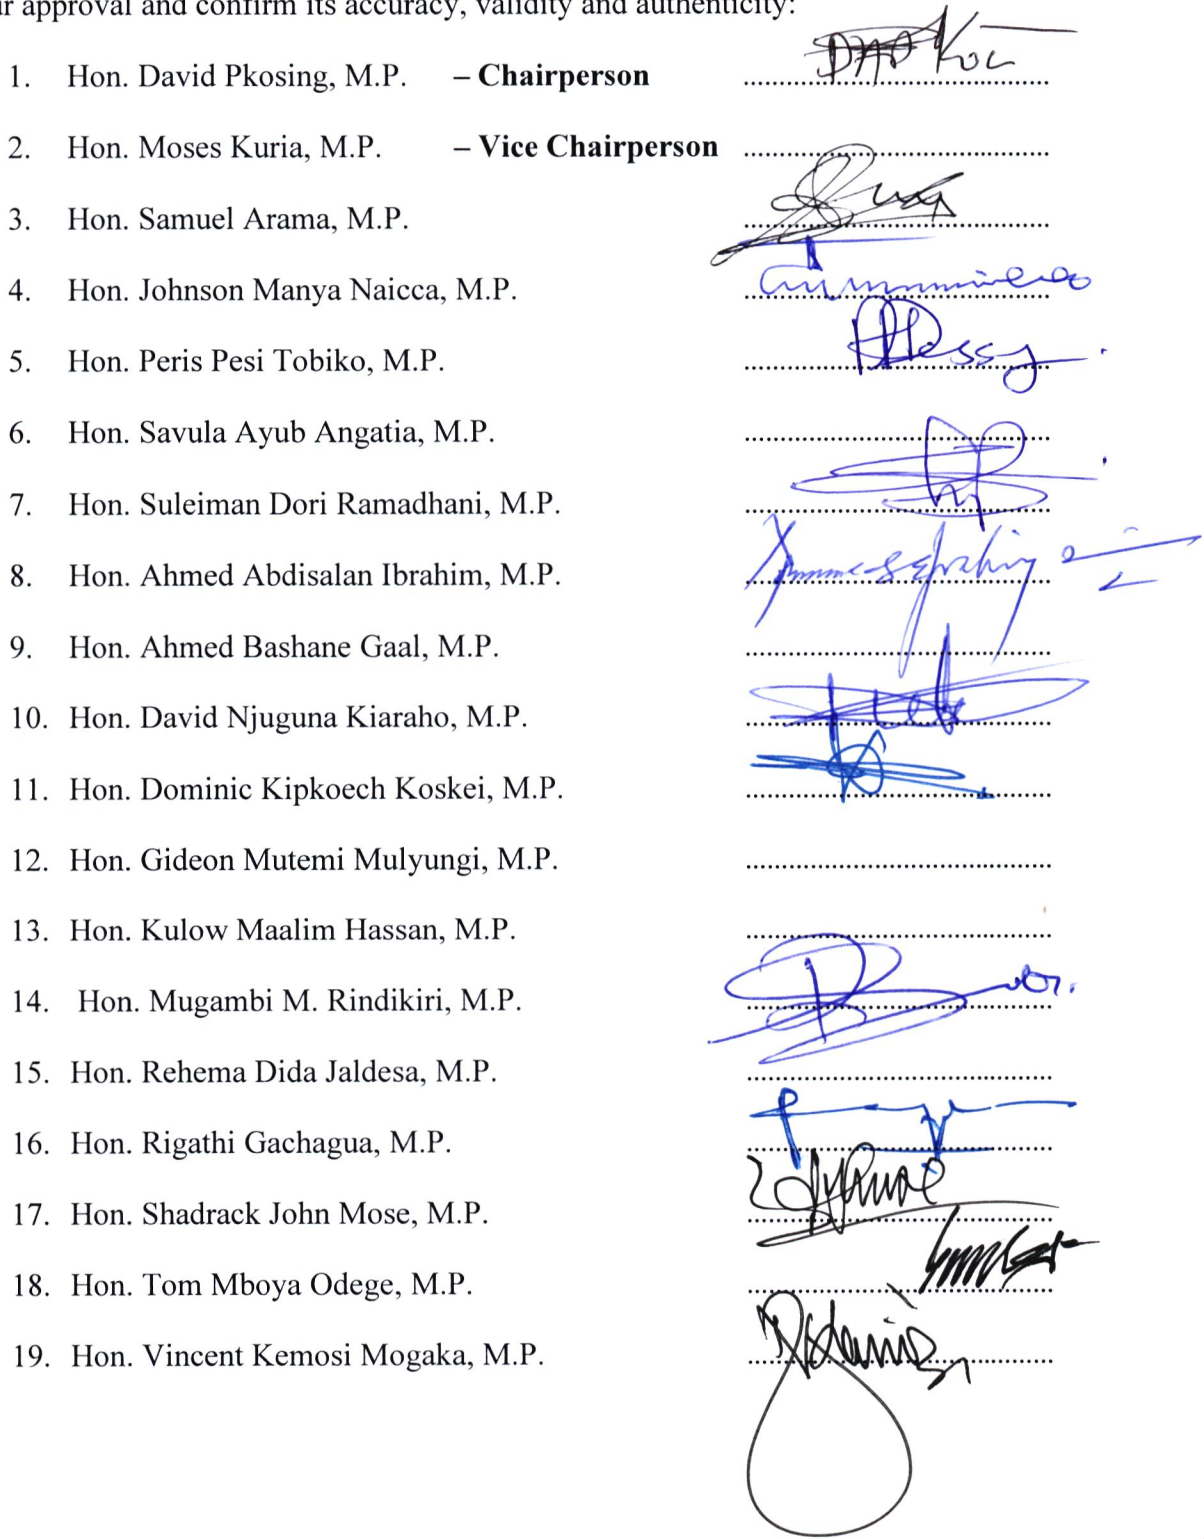 ir approval and confirm its accuracy, validity and authenticity:
1. Hon. David Pkosing, M.P. – Chairperson ......................................
2. Hon. Moses Kuria, M.P. – Vice Chairperson ......................................
3. Hon. Samuel Arama, M.P. ......................................
4. Hon. Johnson Manya Naicca, M.P. ......................................
5. Hon. Peris Pesi Tobiko, M.P. ......................................
6. Hon. Savula Ayub Angatia, M.P. ......................................
7. Hon. Suleiman Dori Ramadhani, M.P. ......................................
8. Hon. Ahmed Abdisalan Ibrahim, M.P. ......................................
9. Hon. Ahmed Bashane Gaal, M.P. ......................................
10. Hon. David Njuguna Kiaraho, M.P. ......................................
11. Hon. Dominic Kipkoech Koskei, M.P. ......................................
12. Hon. Gideon Mutemi Mulyungi, M.P. ......................................
13. Hon. Kulow Maalim Hassan, M.P. ......................................
14. Hon. Mugambi M. Rindikiri, M.P. ......................................
15. Hon. Rehema Dida Jaldesa, M.P. ......................................
16. Hon. Rigathi Gachagua, M.P. ......................................
17. Hon. Shadrack John Mose, M.P. ......................................
18. Hon. Tom Mboya Odege, M.P. ......................................
19. Hon. Vincent Kemosi Mogaka, M.P. ......................................